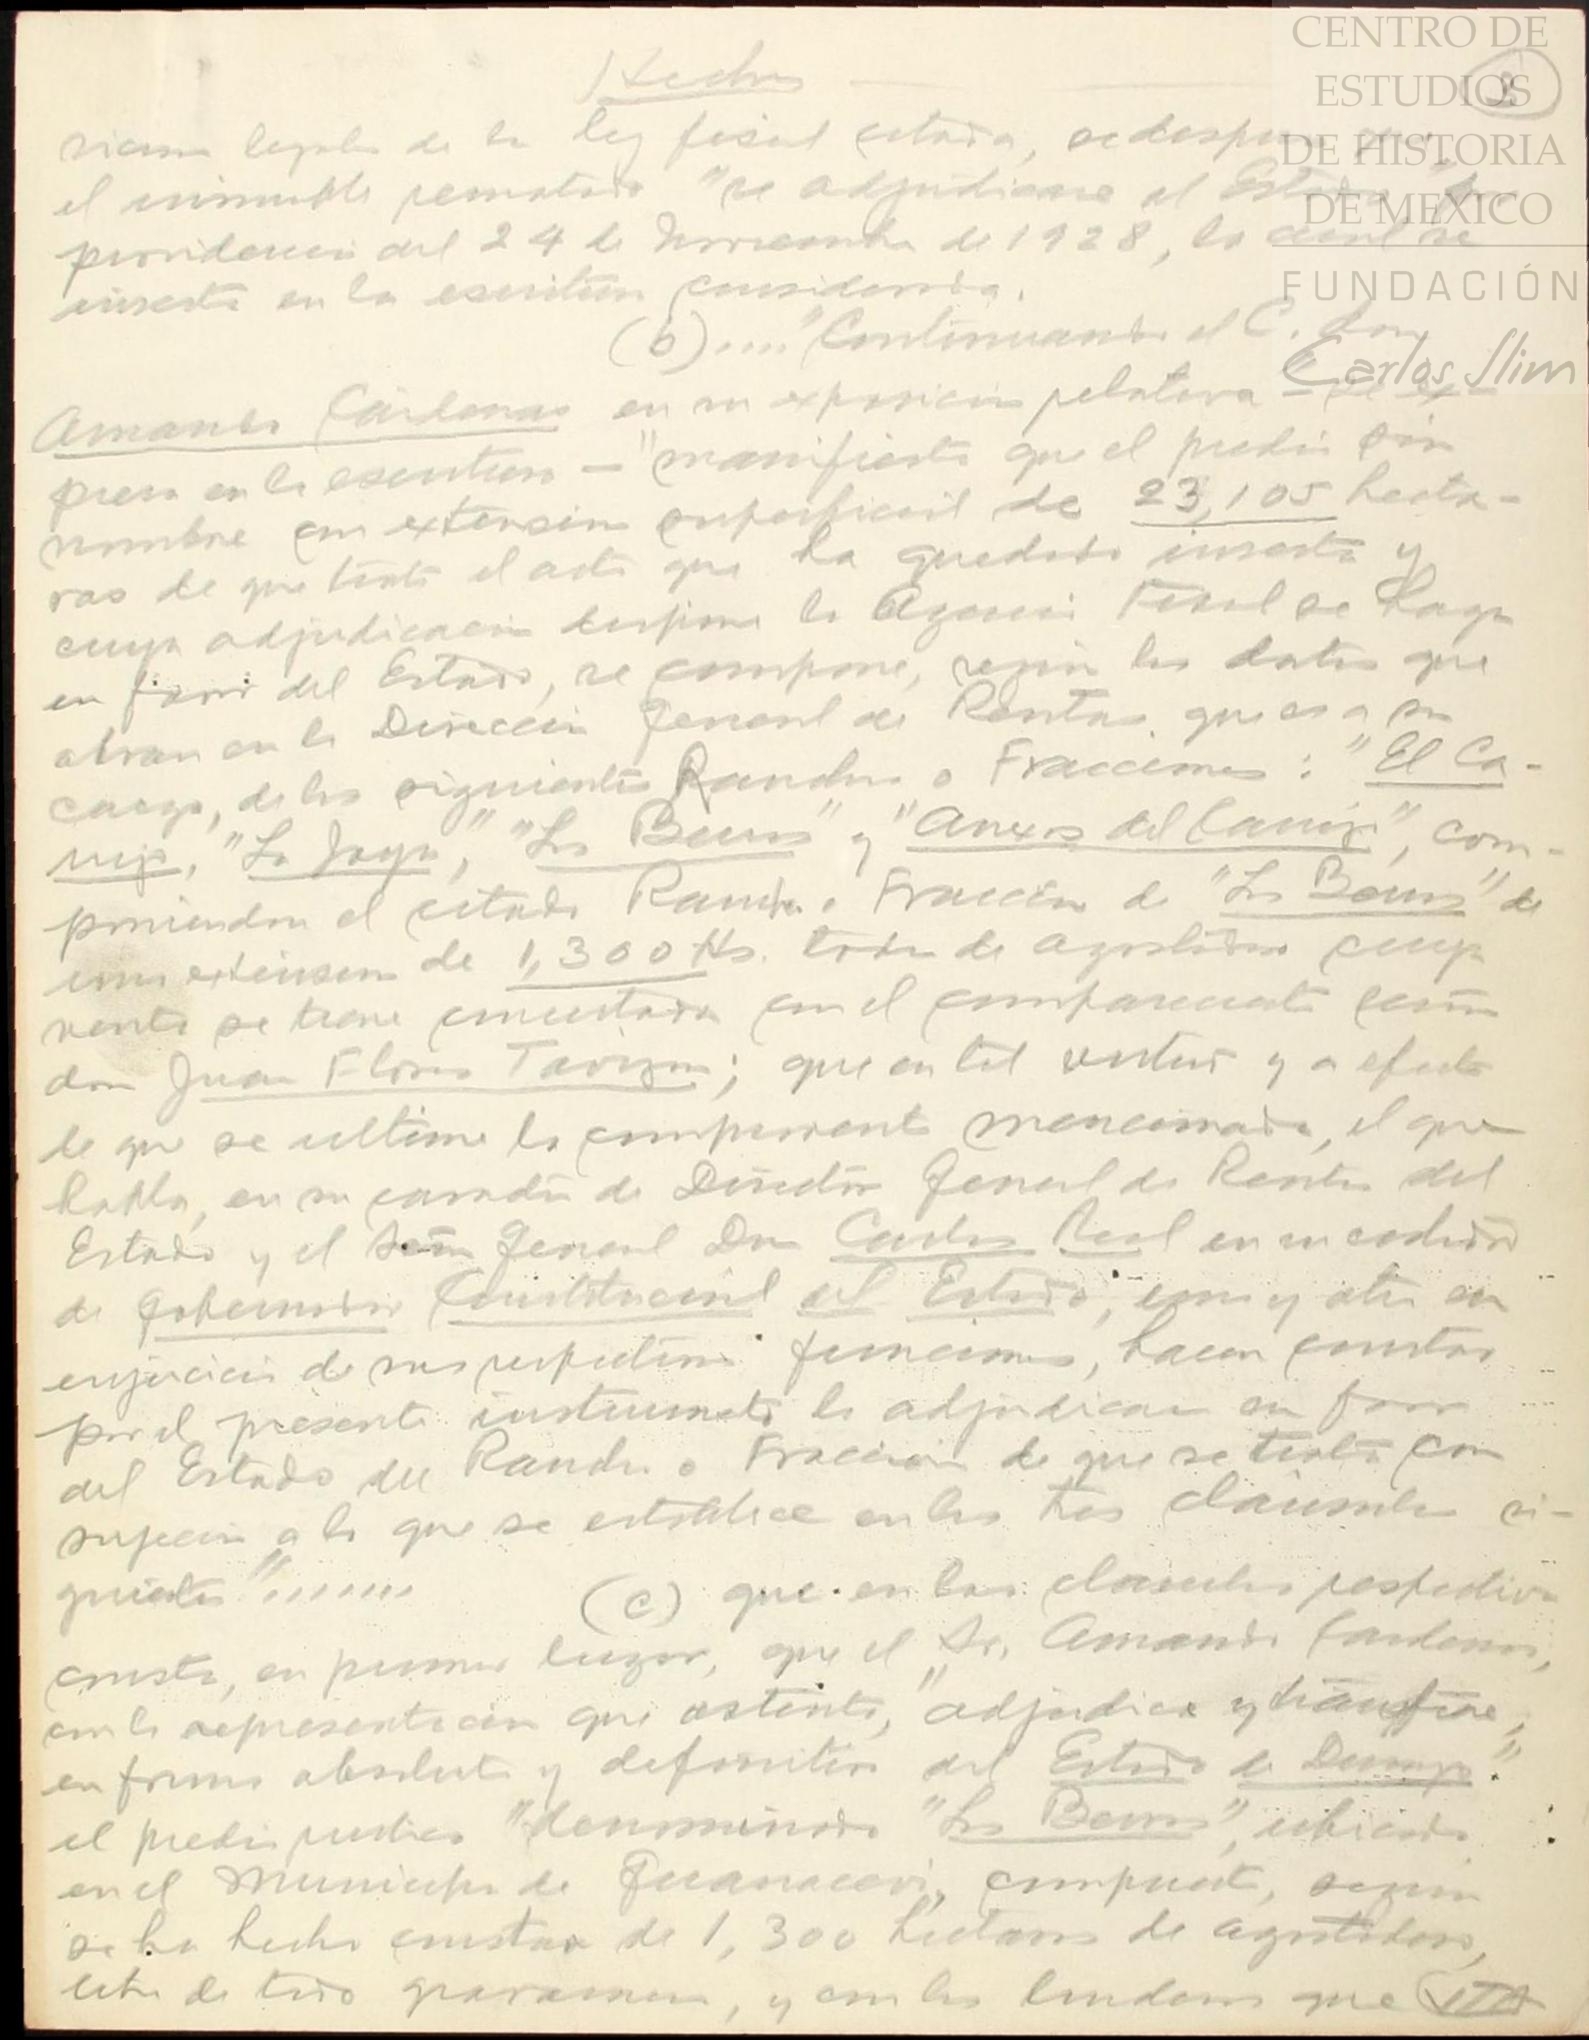 Hechos
CENTRO DE
ESTUDIOS
DE HISTORIA
DE MEXICO
FUNDACIÓN
Carlos Slim
legales de la ley fiscal citada, se dispuso
el inmueble rematado "se adjudicara al Estado"
providencia del 24 de Noviembre de 1928, la cual se
inserta en la escritura considerada.
(b)...."Continuando el C. don
Amando Cárdenas en su exposicion relativa
presa en la escritura — "manifiesta que el predio sin
nombre con extension superficial de 23,105 hecta-
ras de que trata el acta que ha quedado inserta y
cuya adjudicacion dispone la Agencia Fiscal se haga
en favor del Estado, se compone, segun los datos que
obran en la Direccion General de Rentas que es a su
cargo, de los siguientes Ranchos o Fracciones: "El Ca-
rrizo", "La Joya", "Los Berros" y "Anexos del Carrizo", com-
poniendose el citado Rancho o Fraccion de "Los Berros" de
una extension de 1,300 Hs. todas de agostadero cuya
venta se tiene concertada con el compareciente señor
don Juan Flores Tavizon; que en tal virtud y a efecto
de que se ultime la compraventa mencionada, el que
habla, en su caracter de Director General de Rentas del
Estado y el Señor General Don Carlos Real en su calidad
de Gobernador Constitucional del Estado, uno y otro en
ejercicio de sus respectivas funciones, hacen constar
por el presente instrumento la adjudicacion en favor
del Estado del Rancho o Fraccion de que se trata con
sujecion a lo que se establece en las tres clausulas si-
guientes"......
(c) que en las clausulas respectivas
consta, en primer lugar, que el Sr. Amando Cardenas,
con la representacion que ostenta, "adjudica y transfiere,
en forma absoluta y definitiva al Estado de Durango"
el predio rustico "denominado "Los Berros", ubicado
en el Municipio de Guanacevi, compuesto, segun
se ha hecho constar de 1,300 hectaras de agostadero,
libre de todo gravamen, y con los linderos que